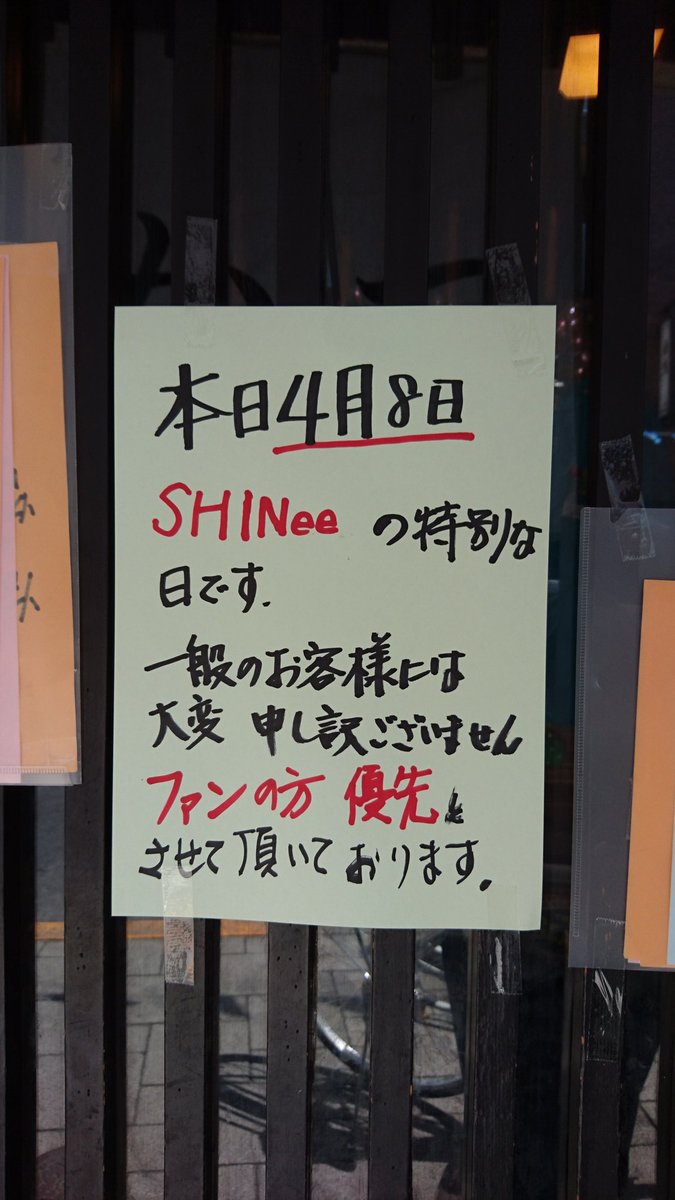 本日4月8日
SHINee の特別な
日です.
一般のお客様には
大変 申し訳ございません
ファンの方 優先と
させて頂いております.